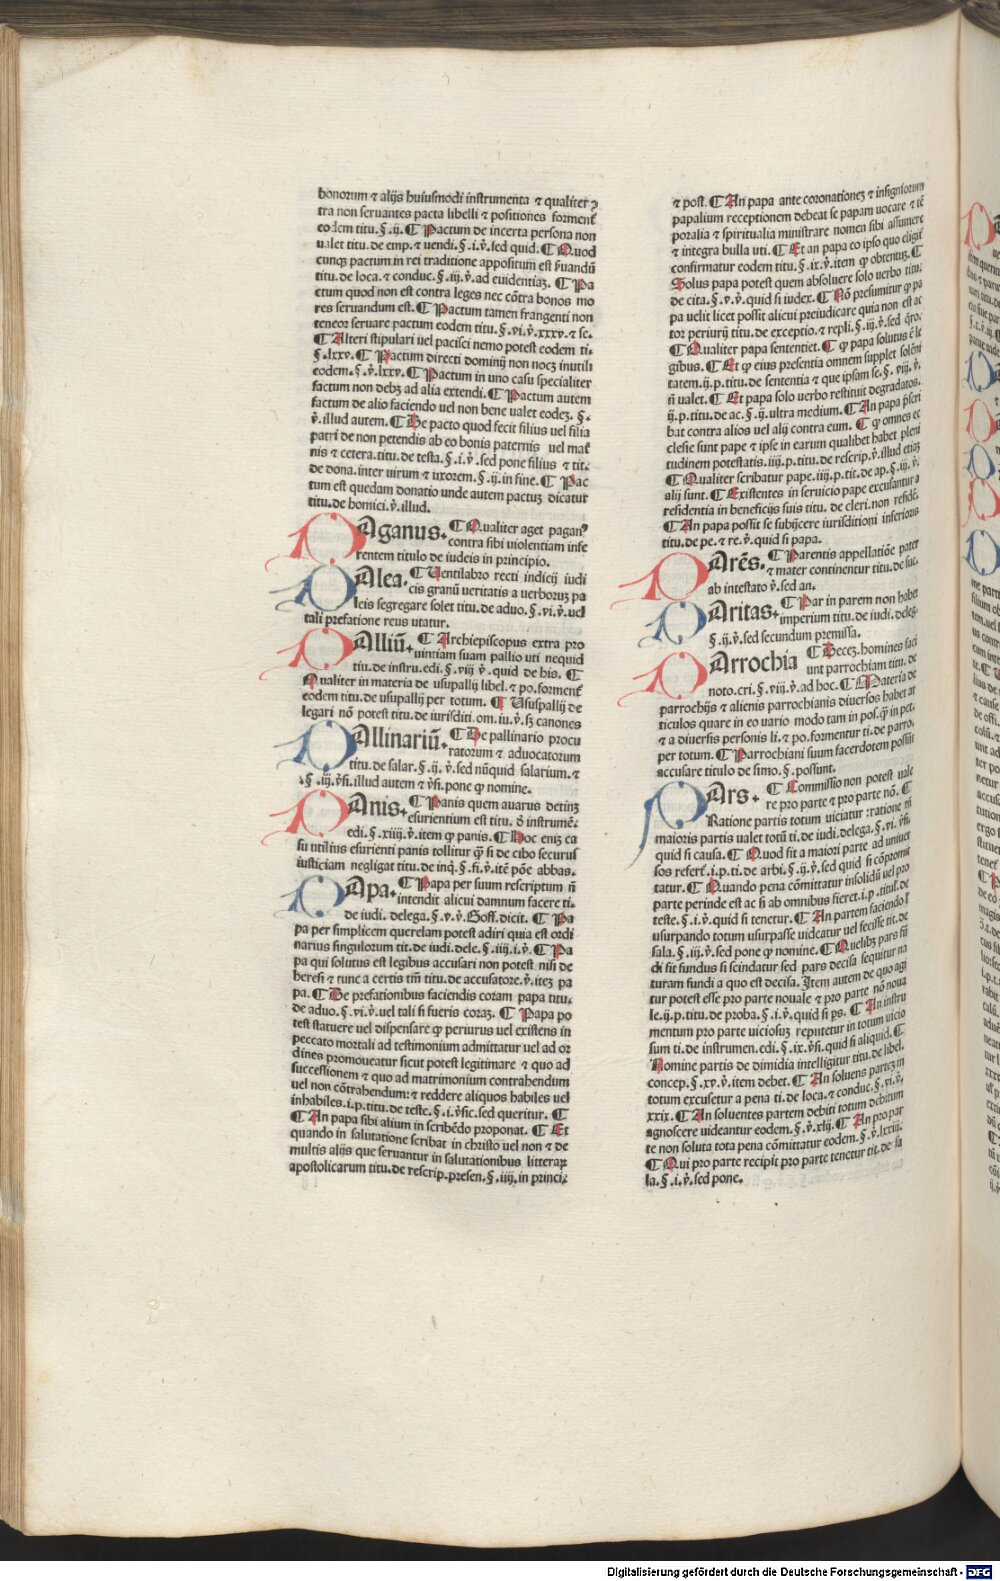 bonorum ⁊ alijs huiusmodi instrumenta ⁊ qualiter ↄ
tra non seruantes pacta libelli ⁊ positiones formenť
eodem titu. §. ij. ¶ Pactum de incerta persona non
ualet titu. de emp. ⁊ uendi. §. i. v̓. sed quid. ¶ Quod
cunqꝫ pactum in rei traditione appositum est ẜuandū
titu. de loca. ⁊ conduc. §. iij. v̓. ad euidentiaꝫ. ¶ Pa
ctum quod non est contra leges nec cōtra bonos mo
res seruandum est. ¶ Pactum tamen frangenti non
teneor seruare pactum eodem titu. §. vi. v̓. xxxv. ⁊ se.
¶ Alteri stipulari uel pacisci nemo potest eodem ti.
§. lxxv. ¶ Pactum directi dominij non nocꝫ inutili
eodem. §. v̓. lxxv. ¶ Pactum in uno casu specialiter
factum non debꝫ ad alia extendi. ¶ Pactum autem
factum de alio faciendo uel non bene ualet eodeꝫ. §.
v̓. illud autem. ¶ De pacto quod fecit filius uel filia
patri de non petendis ab eo bonis paternis uel mať
nis ⁊ cetera. titu. de testa. §. i. v̓. sed pone filius ⁊ tit.
de dona. inter uirum ⁊ uxorem. §. ij. in fine. ¶ Pac
tum est quedam donatio unde autem pactuꝫ dicatur
titu. de homici. v̓. illud.
PAganus. ¶ Qualiter aget paganꝰ
contra sibi uiolentiam infe
rentem titulo de iudeis in principio.
PAlea. ¶ Uentilabro recti indicij iudi
cis granū ueritatis a uerboruꝫ pa
leis segregare solet titu. de aduo. §. vi. v̓. uel
tali prefatione reus utatur.
PAlliū. ¶ Archiepiscopus extra pro
uintiam suam pallio uti nequid
titu. de instru. edi. §. viij v̓. quid de his. ¶
Qualiter in materia de usupallij libel. ⁊ po. formenť
eodem titu. de usupallij per totum. ¶ Ususpallij de
legari nō potest titu. de iurisditi. om. iu. v̓. sꝫ canones
PAllinariū. ¶ De pallinario procu
ratorum ⁊ aduocatorum
titu. de salar. §. ij. v̓. sed nūquid salarium. ⁊
. §. iij. v̓si. illud autem ⁊ v̓si. pone ꝙ nomine.
PAnis. ¶ Panis quem auarus detinꝫ
esurientium est titu. ð instrumē.
edi. §. xiiij. v̓. item ꝙ panis. ¶ Hoc eniꝫ ca
su utilius esurienti panis tollitur ꝙ̄ si de cibo securus
iusticiam negligat titu. de inq. §. fi. v̓. itē pōe abbas.
PApa. ¶ Papa per suum rescriptum ñ
intendit alicui damnum facere ti.
de iudi. delega. §. v. v̓. Goff. dicit. ¶ Pa
pa per simplicem querelam potest adiri quia est ordi
narius singulorum tit. de iudi. dele. §. iiij. i. v̓. ¶ Pa
pa qui solutus est legibus accusari non potest nisi de
heresi ⁊ tunc a certis tm̄ titu. de accusatore. v̓. iteꝫ pa
pa. ¶ De prefationibus faciendis coram papa titu.
de aduo. §. vi. v̓. uel tali si fueris coraꝫ. ¶ Papa po
test statuere uel dispensare ꝙ periurus uel existens in
peccato mortali ad testimonium admittatur uel ad or
dines promoueatur sicut potest legitimare ⁊ quo ad
successionem ⁊ quo ad matrimonium contrahendum
uel non cōtrahendum: ⁊ reddere aliquos habiles uel
inhabiles. i. p. titu. de teste. §. i. v̓sic. sed queritur. ¶
¶ An papa sibi alium in scribēdo proponat. ¶ Et
quando in salutatione scribat in christo uel non ⁊ de
multis alijs que seruantur in salutationibus litteraꝝ
apostolicarum titu. de rescrip. presen. §. iiij. in princi.
⁊ post. ¶ An papa ante coronationeꝫ ⁊ insigniorum
papalium receptionem debeat se papam uocare ⁊ tē
poralia ⁊ spiritualia ministrare nomen sibi assumere
⁊ integra bulla uti. ¶ Et an papa eo ipso quo eligiť
confirmatur eodem titu. §. ix. v̓. item ꝙ obtentuꝫ. ¶
Solus papa potest quem absoluere solo uerbo titu.
de cita. §. v. v̓. quid si iudex. ¶ Nō presumitur ꝙ pa
pa uelit licet possit alicui preiudicare quia non est ac
tor periurij titu. de exceptio. ⁊ repli. §. iij. v̓. sed q̄ro.
¶ Qualiter papa sententiet. ¶ ꝙ papa solutus ē le
gibus. ¶ Et ꝙ eius presentia omnem supplet solēni
tatem. ij. p. titu. de sententia ⁊ que ipsam se. §. viij. v̓.
ñ ualet. ¶ Et papa solo uerbo restituit degradatos.
ij. p. titu. de ac. §. ij. ultra medium. ¶ An papa p̄scri
bat contra alios uel alij contra eum. ¶ ꝙ omnes ec
clesie sunt pape ⁊ ipse in earum qualibet habet pleni
tudinem potestatis. iiij. p. titu. de rescrip. v̓. illud etiaꝫ
¶ Qualiter scribatur pape. iiij. p. tit. de ap. §. iij. v̓.
alij sunt. ¶ Existentes in seruicio pape excusantur a
residentia in beneficijs suis titu. de cleri. non residē.
¶ An papa possit se subijcere iurisditioni inferioris
titu. de pe. ⁊ re. v̓. quid si papa.
PArēs. ¶ Parentis appellatiōe pater
⁊ mater continentur titu. de suc.
ab intestato v̓. sed an.
PAritas. ¶ Par in parem non habet
imperium titu. de iudi. deleg.
§. ij. v̓. sed secundum premissa.
PArrochia ¶ Deceꝫ. homines faci
unt parrochiam titu. de
noto. cri. §. viij. v̓. ad hoc. ¶ Materia de
parrochijs ⁊ alienis parrochianis diuersos habet ar
ticulos quare in eo uario modo tam in pos. ꝙ̄ in pet.
⁊ a diuersis personis li. ⁊ po. formentur ti. de parro.
per totum. ¶ Parrochiani suum sacerdotem possūt
accusare titulo de simo. §. possunt.
PArs. ¶ Commissio non potest uale
re pro parte ⁊ pro parte nō. ¶
Ratione partis totum uiciatur: ratione ñ
maioris partis ualet totū ti. de iudi. delega. §. vi. v̓si.
quid si causa. ¶ Quod sit a maiori parte ad uniuer
sos refertˀ. i. p. ti. de arbi. §. ij. v̓. sed quid si cōpromit
tatur. ¶ Quando pena cōmittatur insolidū uel pro
parte perinde est ac si ab omnibus fieret. i. p. titul. de
teste. §. i. v̓. quid si tenetur. ¶ An partem faciendo ł
usurpando totum usurpasse uideatur uel fecisse tit. de
sala. §. iij. v̓. sed pone ꝙ nomine. ¶ Quelibꝫ pars fū
di sit fundus si scindatur sed pars decisa sequitur na
turam fundi a quo est decisa. Item autem de quo agi
tur potest esse pro parte nouale ⁊ pro parte nō noua
le. ij. p. titu. de proba. §. i. v̓. quid si ps. ¶ An instru
mentum pro parte uiciosuꝫ reputetur in totum uicio
sum ti. de instrumen. edi. §. ix. v̓si. quid si aliquid. ¶
Nomine partis de dimidia intelligitur titu. de libel.
concep. §. xv. v̓. item debet. ¶ An soluens parteꝫ in
totum excusetur a pena ti. de loca. ⁊ conduc. §. vi. v̓.
xxix. ¶ An soluentes partem debiti totum debitum
agnoscere uideantur eodem. §. v̓. xlij. ¶ An pro par
te non soluta tota pena cōmittatur eodem. §. v̓. lxxiij.
¶ Qui pro parte recipit pro parte tenetur tit. de sa
la. §. i. v̓. sed pone.
Digitalisierung gefördert durch die Deutsche Forschungsgemeinschaft - DFG